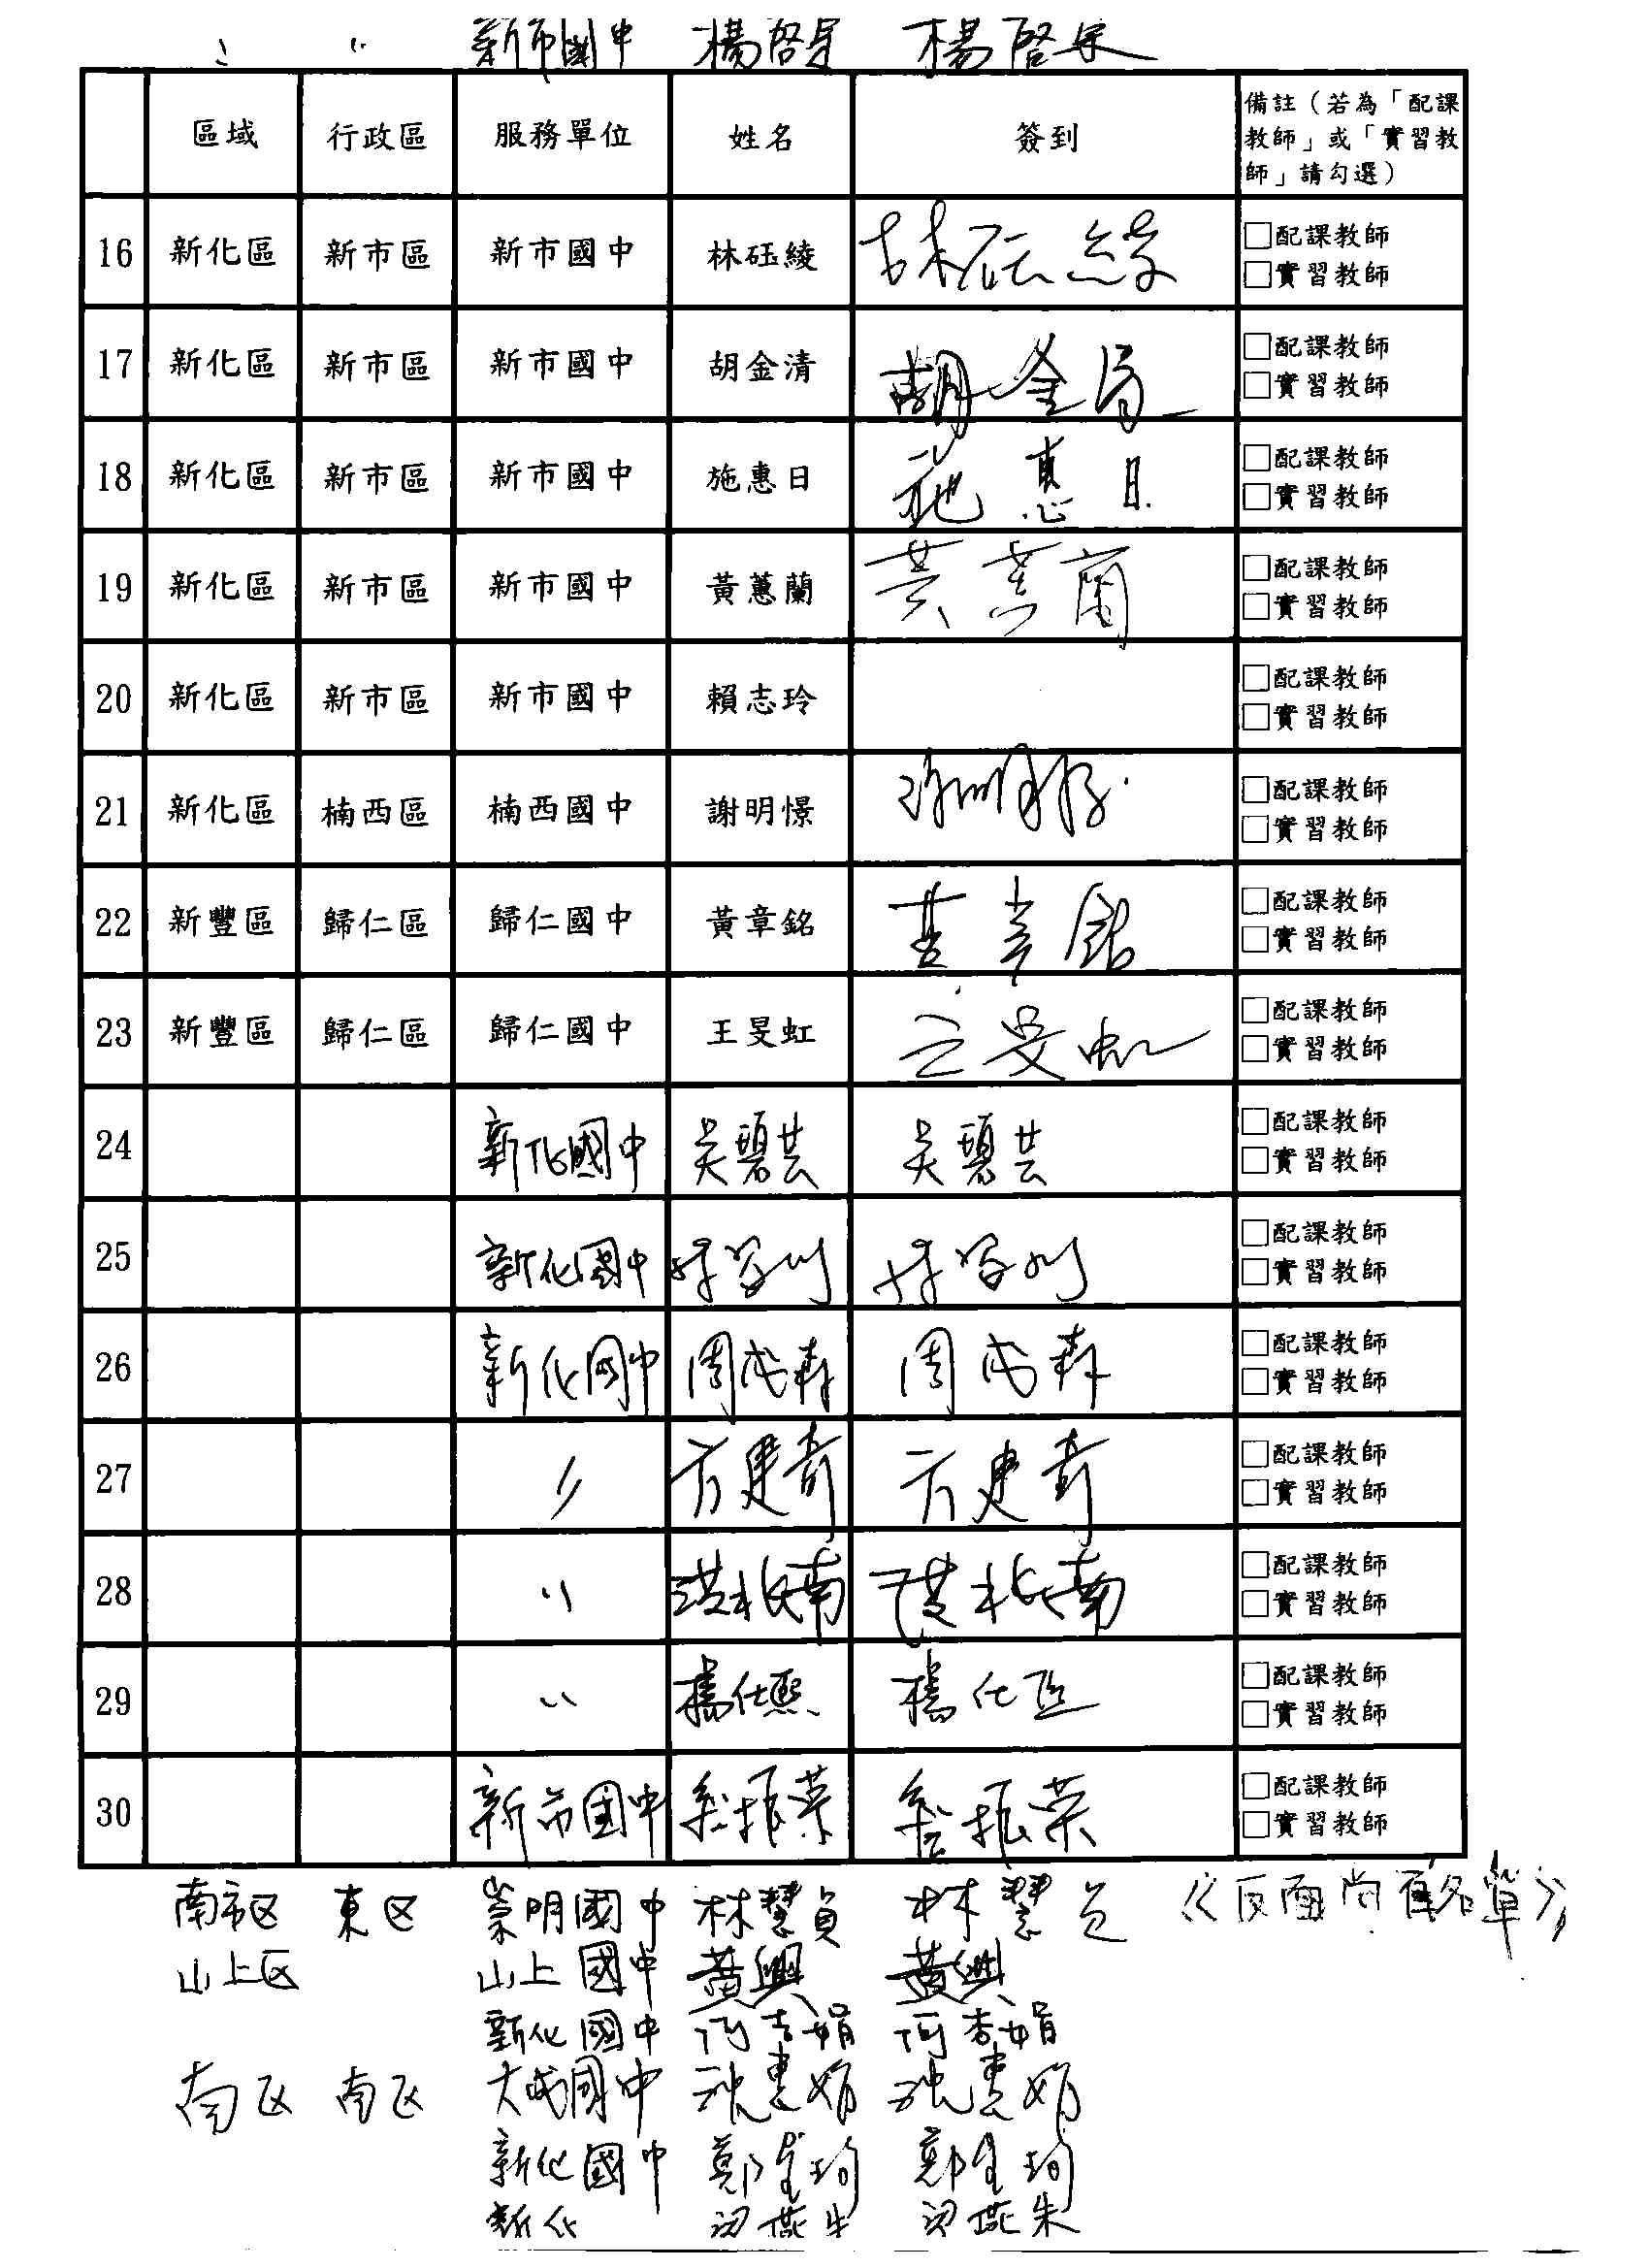 新市國中 楊啓 楊啓
區域 行政區 服務單位 姓名 簽到 備註（若為「配課教師」或「實習教師」請勾選）
16 新化區 新市區 新市國中 林砡綾 林砡綾 □配課教師
□實習教師
17 新化區 新市區 新市國中 胡金清 胡金清 □配課教師
□實習教師
18 新化區 新市區 新市國中 施惠日 施惠日 □配課教師
□實習教師
19 新化區 新市區 新市國中 黃蕙蘭 黃蕙蘭 □配課教師
□實習教師
20 新化區 新市區 新市國中 賴志玲 □配課教師
□實習教師
21 新化區 楠西區 楠西國中 謝明憬 謝明憬 □配課教師
□實習教師
22 新豐區 歸仁區 歸仁國中 黃章銘 黃章銘 □配課教師
□實習教師
23 新豐區 歸仁區 歸仁國中 王旻虹 王旻虹 □配課教師
□實習教師
24 新化國中 吳碧芸 吳碧芸 □配課教師
□實習教師
25 新化國中 □配課教師
□實習教師
26 新化國中 周成森 周成森 □配課教師
□實習教師
27 〃 方建奇 方建奇 □配課教師
□實習教師
28 〃 南 南 □配課教師
□實習教師
29 〃 楊仕熙 楊仕熙 □配課教師
□實習教師
30 新市國中 振榮 振榮 □配課教師
□實習教師
南市区 東区 崇明國中 林慧貞 林慧貞 《反面尚有名單》
山上区 山上國中 黃興 黃興
新化國中 娟 娟
南区 南区 大成國中 惠娟 惠娟
新化國中 鄭 鄭
新化 燕朱 燕朱